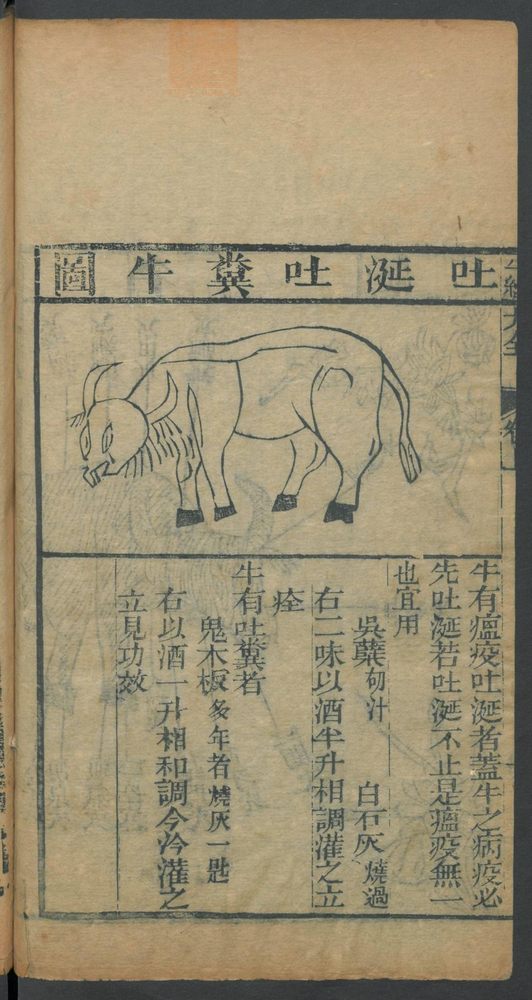 吐涎吐糞牛圖
牛有瘟疫吐涎者蓋牛之病疫必
先吐涎若吐涎不止是瘟疫無一
也宜用
吳汁　白石灰燒過
右二味以酒半升相調灌之立
痊
牛有吐糞者
鬼木板多年者燒灰一匙
右以酒一升相和調今冷灌之
立見功效